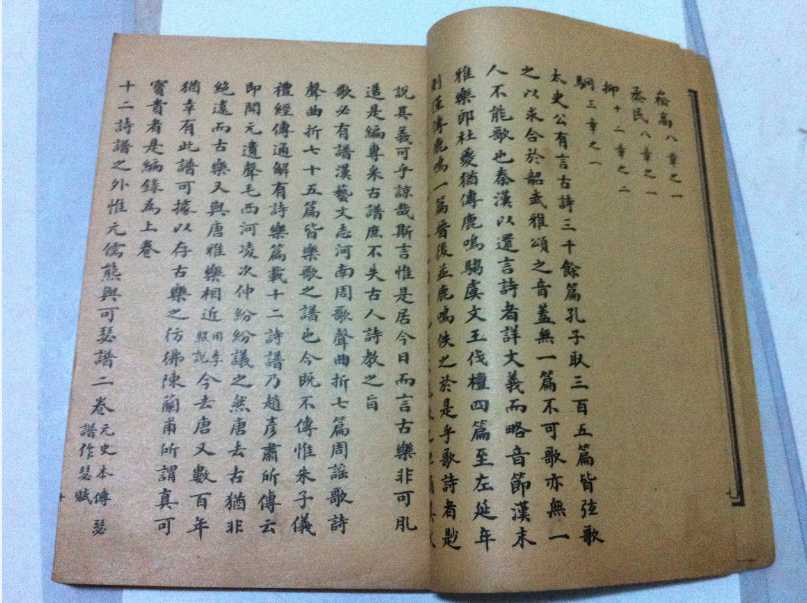 崧高八章之一
烝民八章之一
抑十二章之二
駉三章之一
太史公有言古詩三千餘篇孔子取三百五篇皆弦歌
之以求合於韶武雅頌之音蓋無一篇不可歌亦無一
人不能歌也秦漢以還言詩者詳文義而略音節漢末
雅樂郎杜夔猶傳鹿鳴騶虞文王伐檀四篇至左延年
則僅傳鹿鳴一篇晉後並鹿鳴佚之於是乎歌詩者尟
說其義可乎諒哉斯言惟是居今日而言古樂非可肊
造是編專采古譜庶不失古人詩教之旨
歌必有譜漢藝文志河南周歌聲曲折七篇周謠歌詩
聲曲折七十五篇皆樂歌之譜也今既不傳惟朱子儀
禮經傳通解有詩樂篇載十二詩譜乃趙彥肅所傳云
即開元遺聲毛西河凌次仲紛紛議之然唐去古猶非
絕遠而古樂又與唐雅樂相近用李照說今去唐又數百年
猶幸有此譜可據以存古樂之彷彿陳蘭甫所謂真可
寶貴者是編錄為上卷
十二詩譜之外惟元儒熊與可瑟譜二卷元史本傳瑟譜作瑟賦